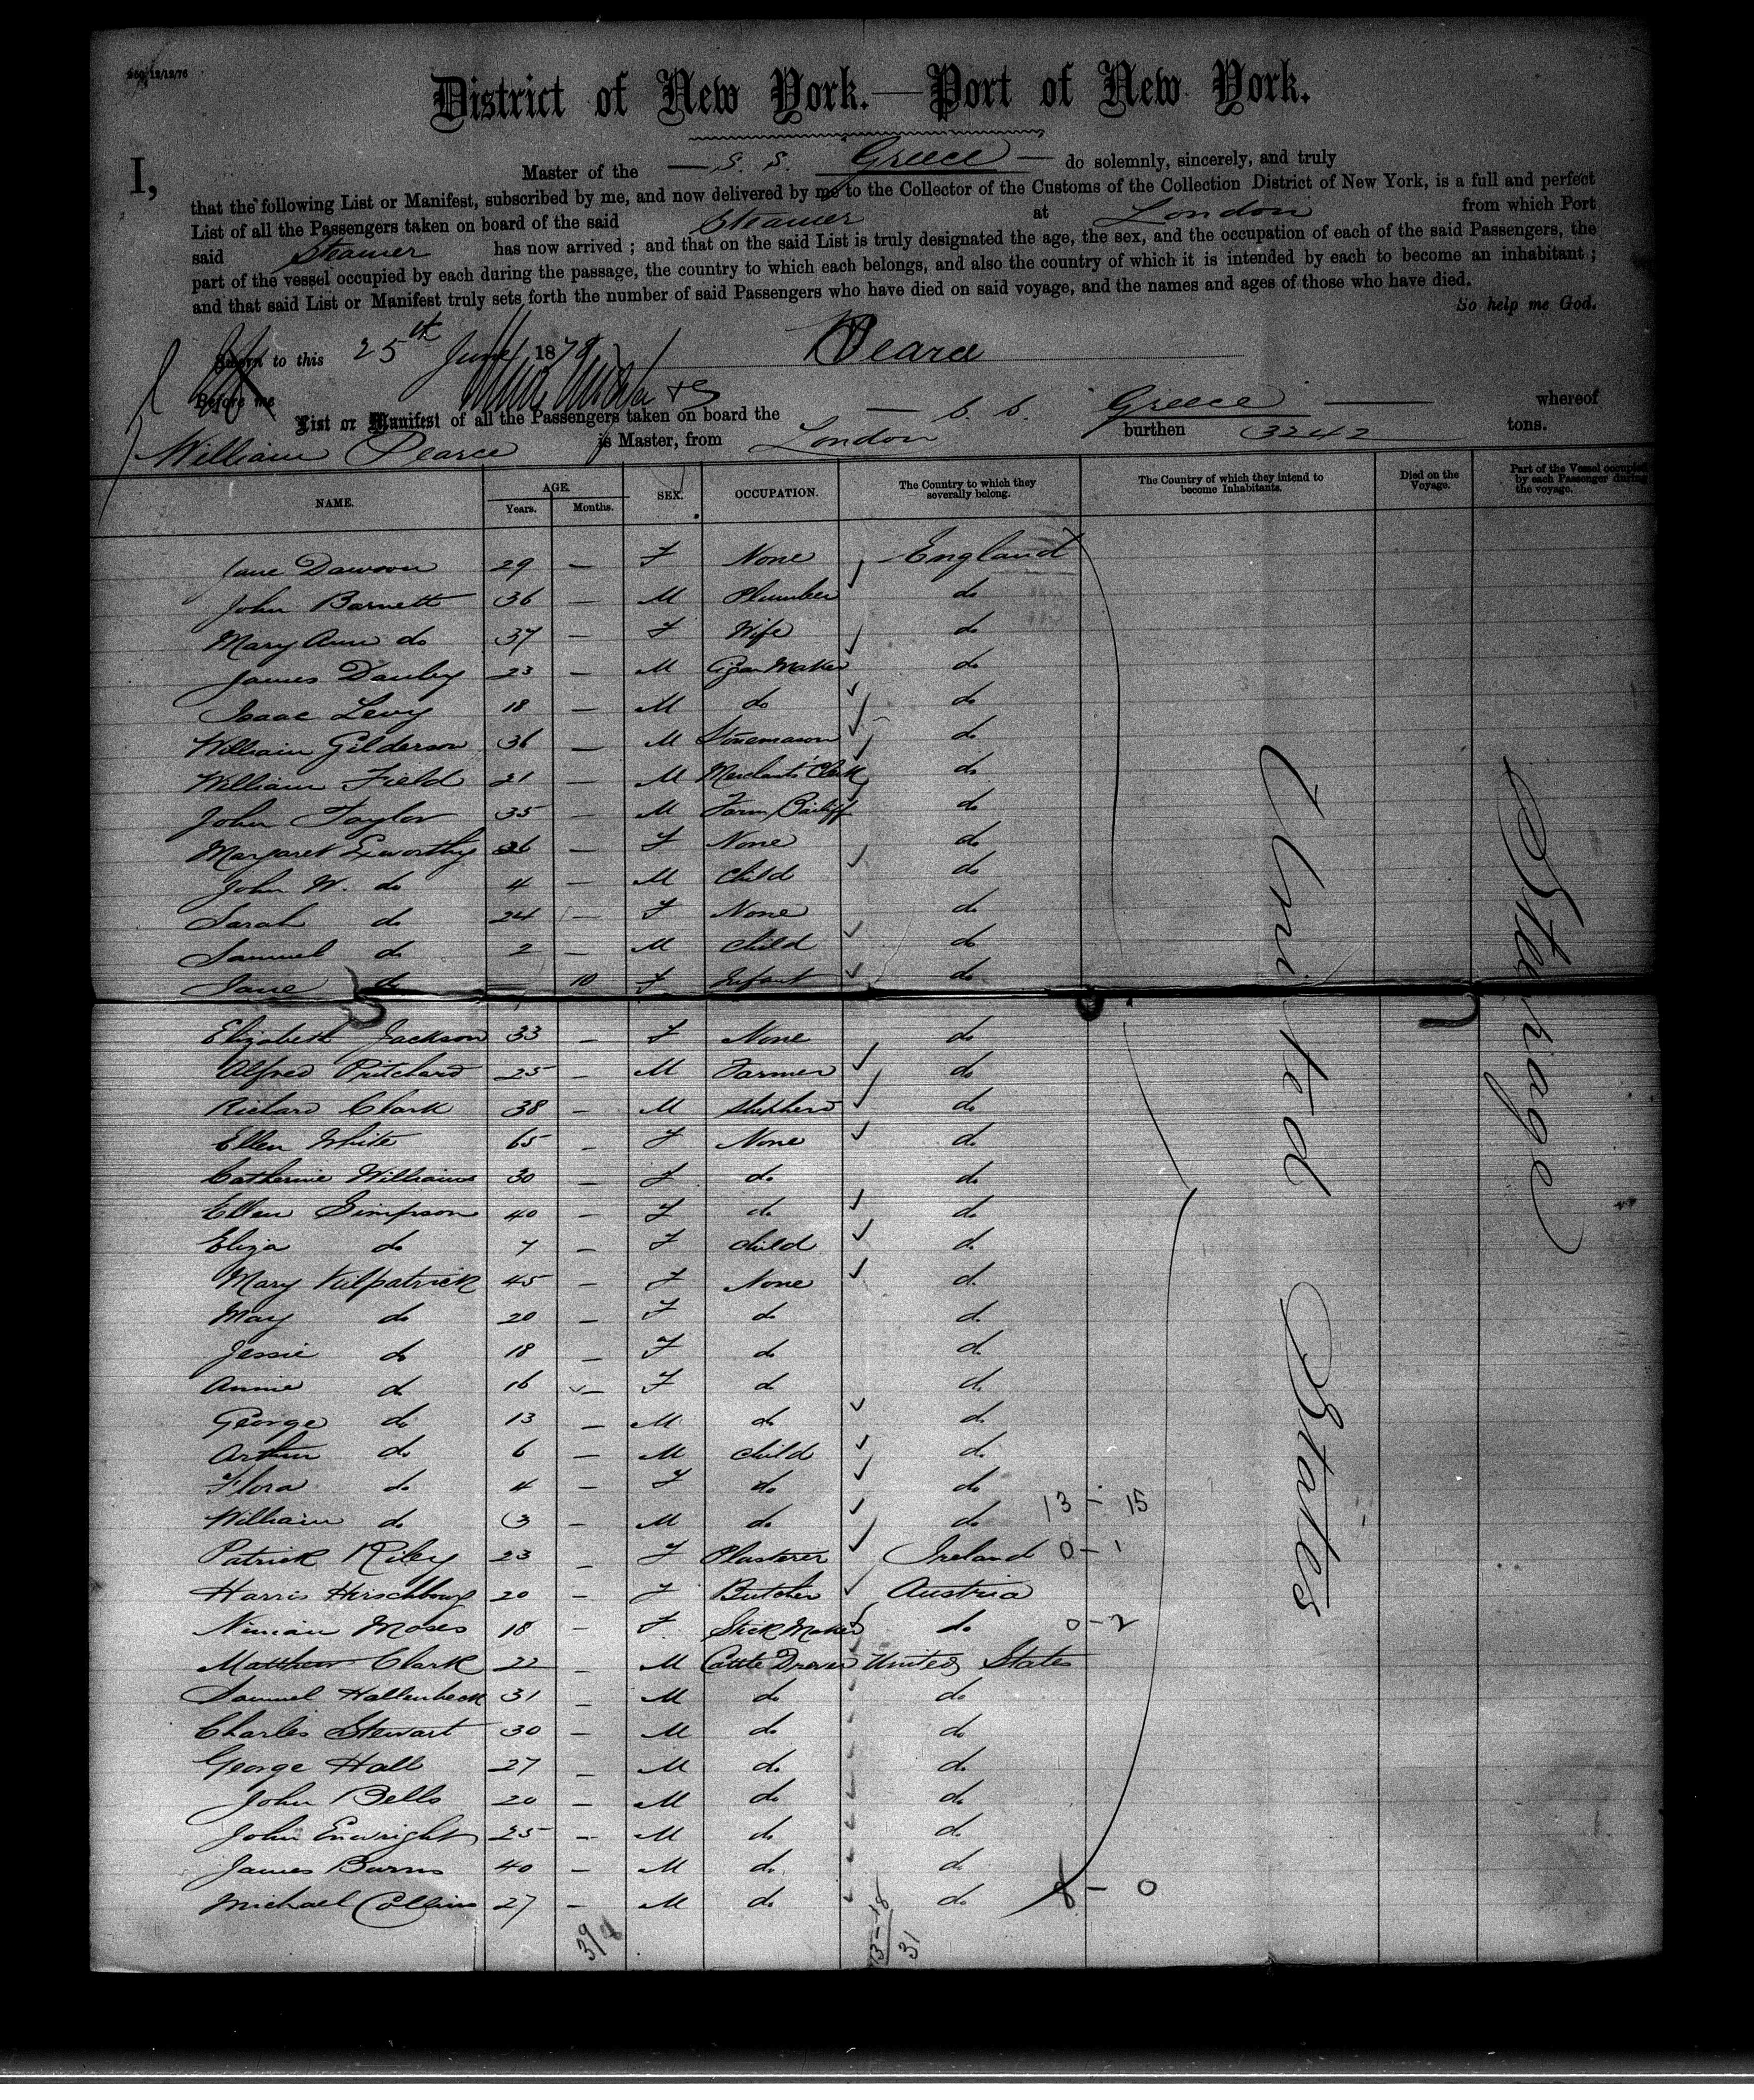 District of New York.—Port of New York.
I, Master of the — S. S. Greece — do solemnly, sincerely, and truly
that the following List or Manifest, subscribed by me, and now delivered by me to the Collector of the Customs of the Collection District of New York, is a full and perfect
List of all the Passengers taken on board of the said Steamer at London from which Port
said Steamer has now arrived ; and that on the said List is truly designated the age, the sex, and the occupation of each of the said Passengers, the
part of the vessel occupied by each during the passage, the country to which each belongs, and also the country of which it is intended by each to become an inhabitant ;
and that said List or Manifest truly sets forth the number of said Passengers who have died on said voyage, and the names and ages of those who have died.
So help me God.
Sworn to this 25th June 1878 Pearce
Before me
List or Manifest of all the Passengers taken on board the — S. S. Greece — whereof
William Pearce is Master, from London burthen 3242 tons.
NAME. AGE. Years. Months. SEX. OCCUPATION. The Country to which they severally belong. The Country of which they intend to become Inhabitants. Died on the Voyage. Part of the Vessel occupied by each Passenger during the voyage.
Jane Dawson 29 — F None England
John Barnett 36 — M Plumber do
Mary Ann do 37 — F Wife do
James Danby 23 — M Cigar Maker do
Isaac Levy 18 — M do do
William Gilderson 36 — M Stonemason do
William Field 21 — M Merchants Clerk do
John Taylor 35 — M Farm Bailiff do
Margaret Exworthy 36 — F None do
John W. do 4 — M Child do
Sarah do 24 — F None do
Samuel do 2 — M Child do
Jane do 10 F Infant do
Elizabeth Jackson 33 — F None do
Alfred Pritchard 25 — M Farmer do
Richard Clark 38 — M Shepherd do
Ellen White 65 — F None do
Catherine Williams 30 — F do do
Ellen Simpson 40 — F do do
Eliza do 7 — F Child do
Mary Kilpatrick 45 — F None do
May do 20 — F do do
Jessie do 18 — F do do
Annie do 16 — F do do
George do 13 — M do do
Arthur do 6 — M Child do
Flora do 4 — F do do
William do 3 — M do do 13 - 15
Patrick Riley 23 — F Plasterer Ireland 0 - 1
Harris 20 — F Butcher Austria
Moses 18 — F Stick Maker do 0 - 2
Matthew Clark 22 — M Cattle Drover United States
Samuel Hallenbeck 31 — M do do
Charles Stewart 30 — M do do
George Hall 27 — M do do
John Bells 20 — M do do
John Enwright 25 — M do do
James Burns 40 — M do do
Michael Collins 27 — M do do 8 - 0
United States
Steerage
13 - 18
31